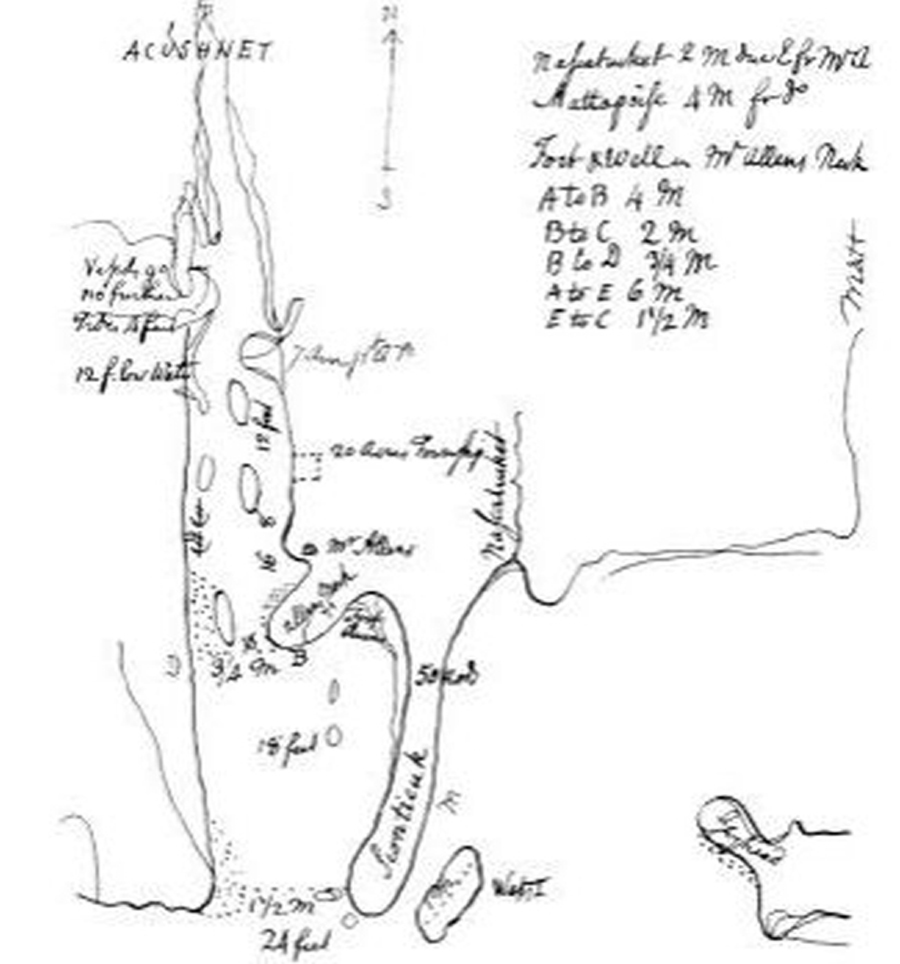 N
ACUSHNET
Nasketucket 2 M due E fr Mr A
Mattapoise 4 M fr do
S
Fort & Well on Mr Allens Neck
A to B 4 M
B to C 2 M
B to D 3/4 M
A to E 6 M
E to C 1 1/2 M
Matt
Vessels go
no further
Tides 4 feet
12 f. low Water
12 feet
20 Acres
8
16
Mr Allens
Allens Neck
Fort
18
B
3/4 M
D
50 rod
18 feet
Sconticuk
M
West I
1 1/2 M
24 feet